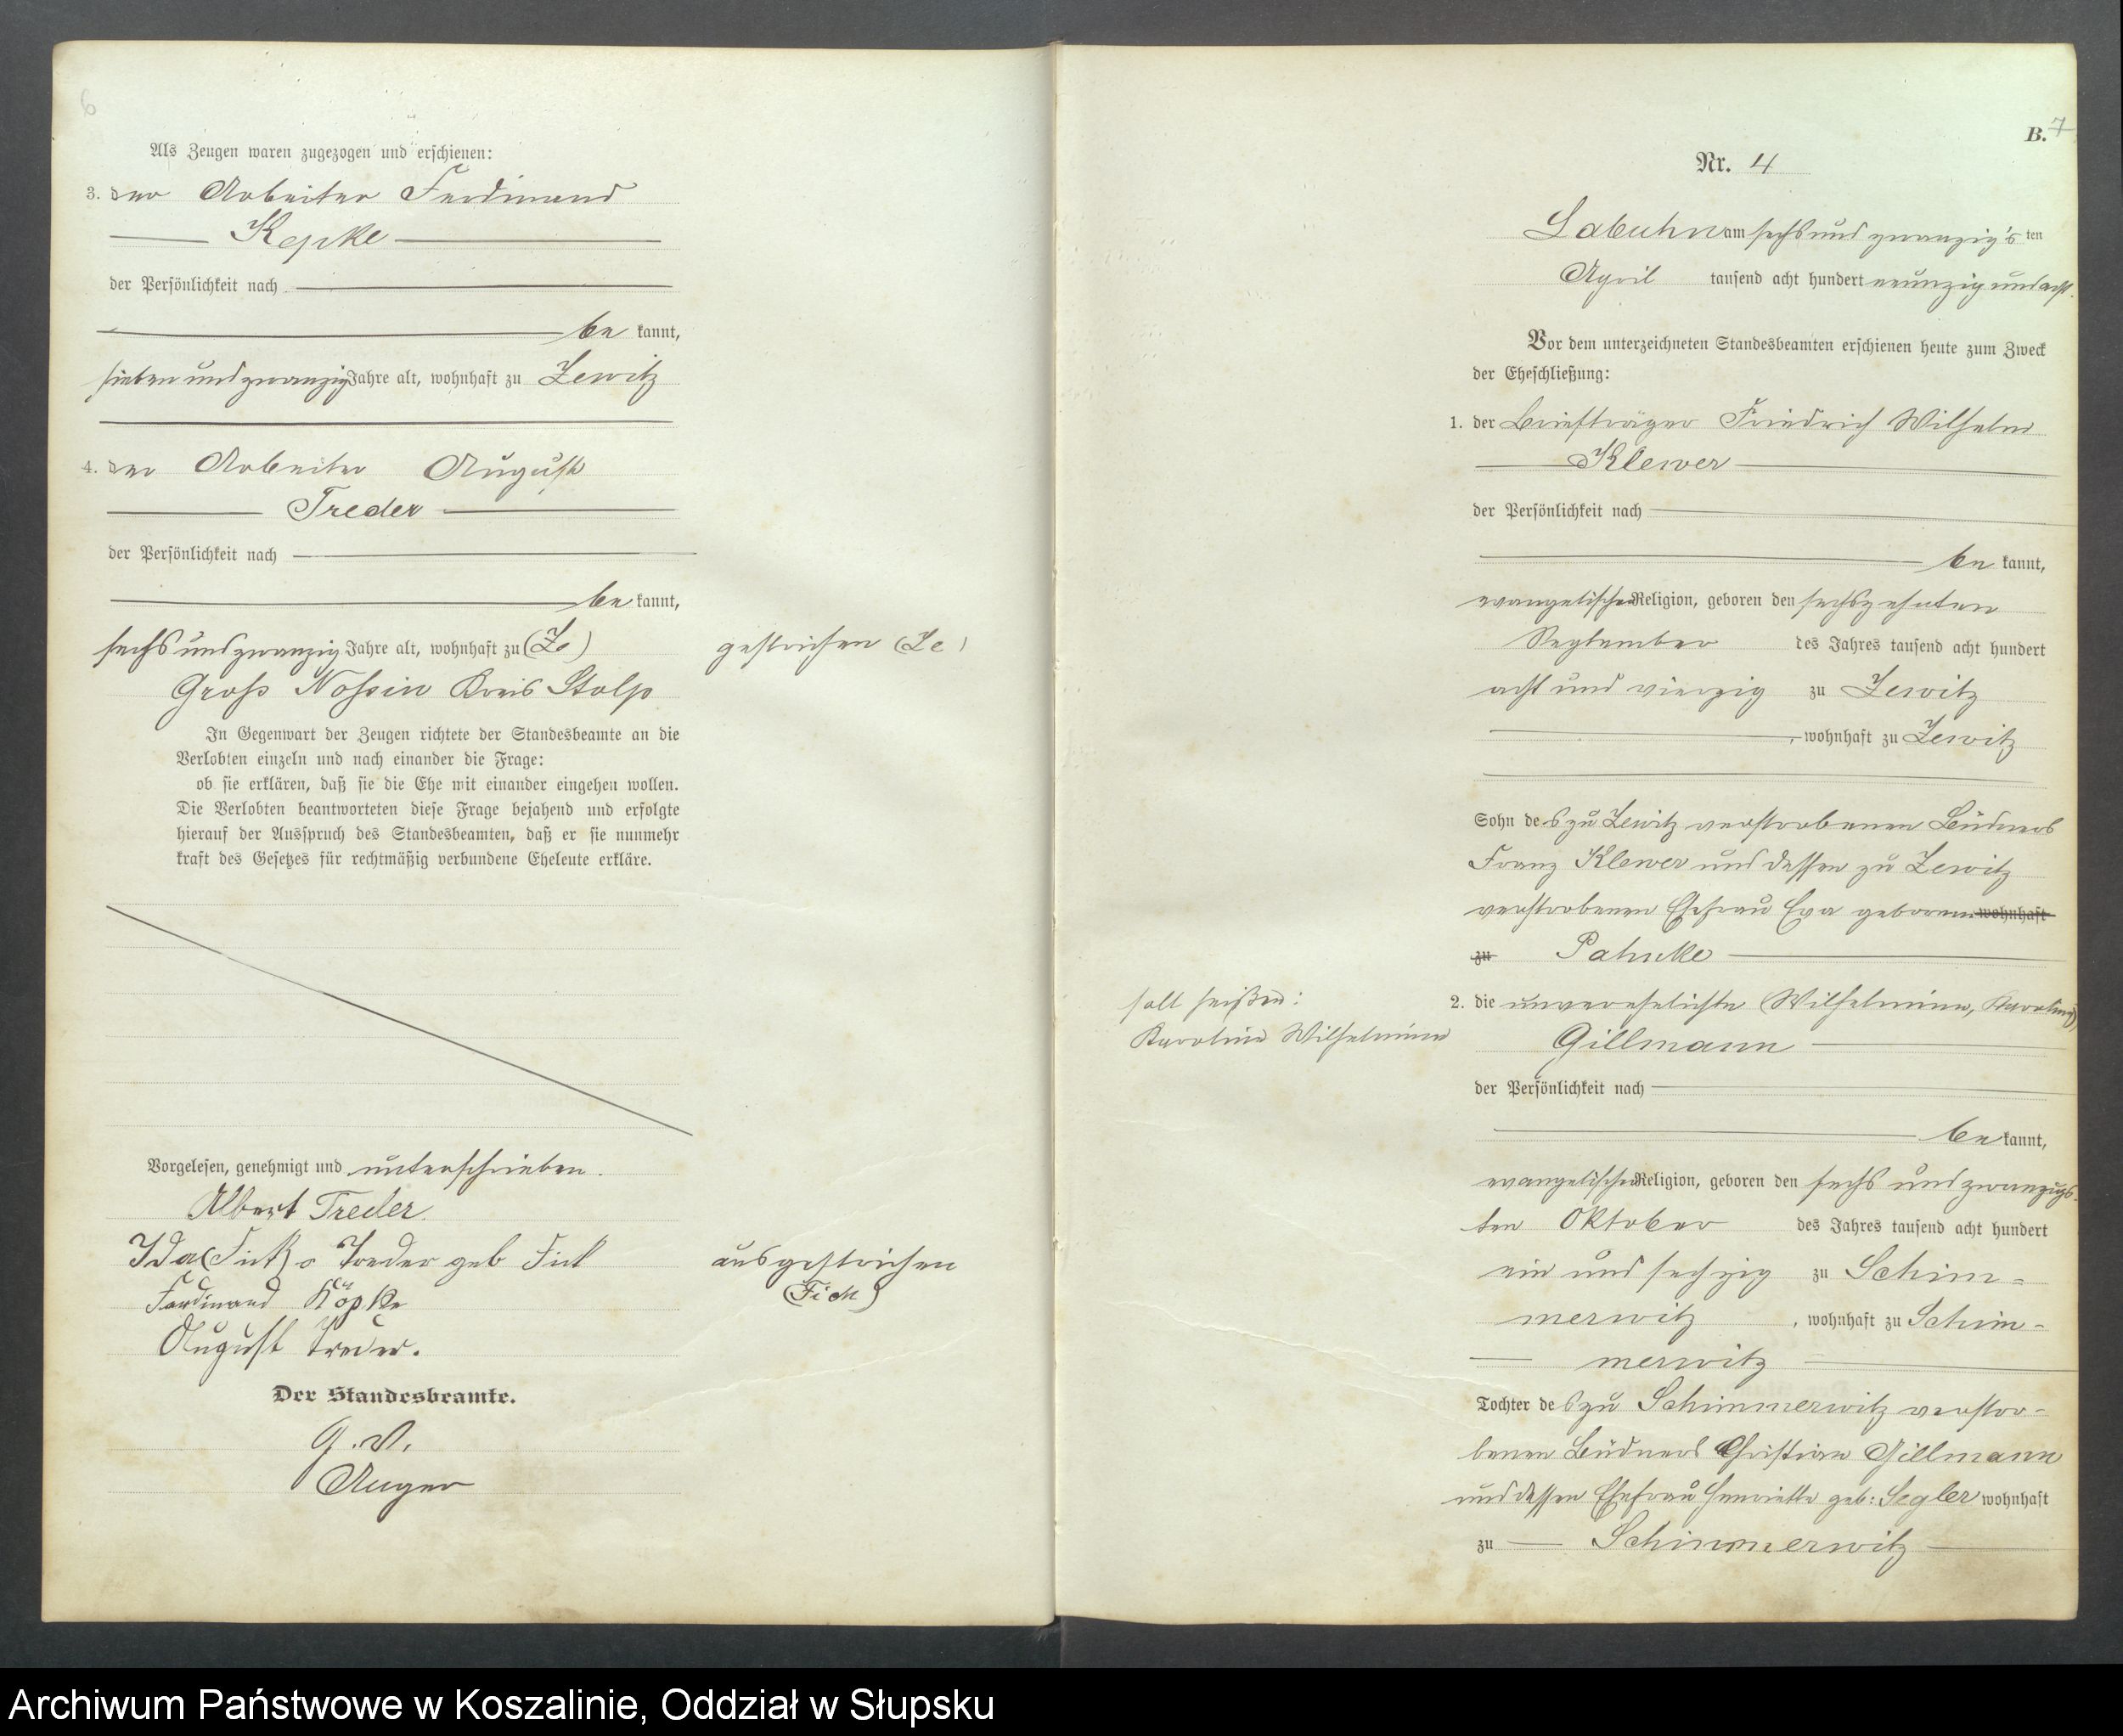 6
Als Zeugen waren zugezogen und erschienen:
3. der Arbeiter Ferdinand
Kepke
der Persönlichkeit nach
be kannt,
sieben und zwanzig Jahre alt, wohnhaft zu Zewitz
4. der Arbeiter August
Treder
der Persönlichkeit nach
be kannt,
sechs und zwanzig Jahre alt, wohnhaft zu (Ze)
gestrichen (Ze)
Groß Nossin Kreis Stolp
In Gegenwart der Zeugen richtete der Standesbeamte an die
Verlobten einzeln und nach einander die Frage:
ob sie erklären, daß sie die Ehe mit einander eingehen wollen.
Die Verlobten beantworteten diese Frage bejahend und erfolgte
hierauf der Ausspruch des Standesbeamten, daß er sie nunmehr
kraft des Gesetzes für rechtmäßig verbundene Eheleute erkläre.
Vorgelesen, genehmigt und unterschrieben.
Albert Treder.
Ida (Fick) Treder geb Fick
ausgestrichen
(Fick)
Ferdinand Köpke
August Treder.
Der Standesbeamte.
Auger
B. 7
Nr. 4
Labuhn am sechs und zwanzig's ten
April tausend acht hundert neunzig und acht.
Vor dem unterzeichneten Standesbeamten erschienen heute zum Zweck
der Eheschließung:
1. der Briefträger Friedrich Wilhelm
Klewer
der Persönlichkeit nach
be kannt,
evangelischer Religion, geboren den sechszehnten
September des Jahres tausend acht hundert
acht und vierzig zu Zewitz
, wohnhaft zu Zewitz
Sohn des zu Zewitz verstorbenen Büdners
Franz Klewer und dessen zu Zewitz
verstorbenen Ehefrau Eva geborene wohnhaft
zu Pahnke
soll heißen:
Karoline Wilhelmine
2. die unverehelichte (Wilhelmine, Karoline)
Gillmann
der Persönlichkeit nach
be kannt,
evangelischer Religion, geboren den sechs und zwanzigs-
ten Oktober des Jahres tausend acht hundert
ein und sechzig zu Schim-
merwitz, wohnhaft zu Schim-
merwitz
Tochter des zu Schimmerwitz verstor-
benen Büdners Christian Gillmann
und dessen Ehefrau Henriette geb: Segler wohnhaft
zu Schimmerwitz
Archiwum Państwowe w Koszalinie, Oddział w Słupsku